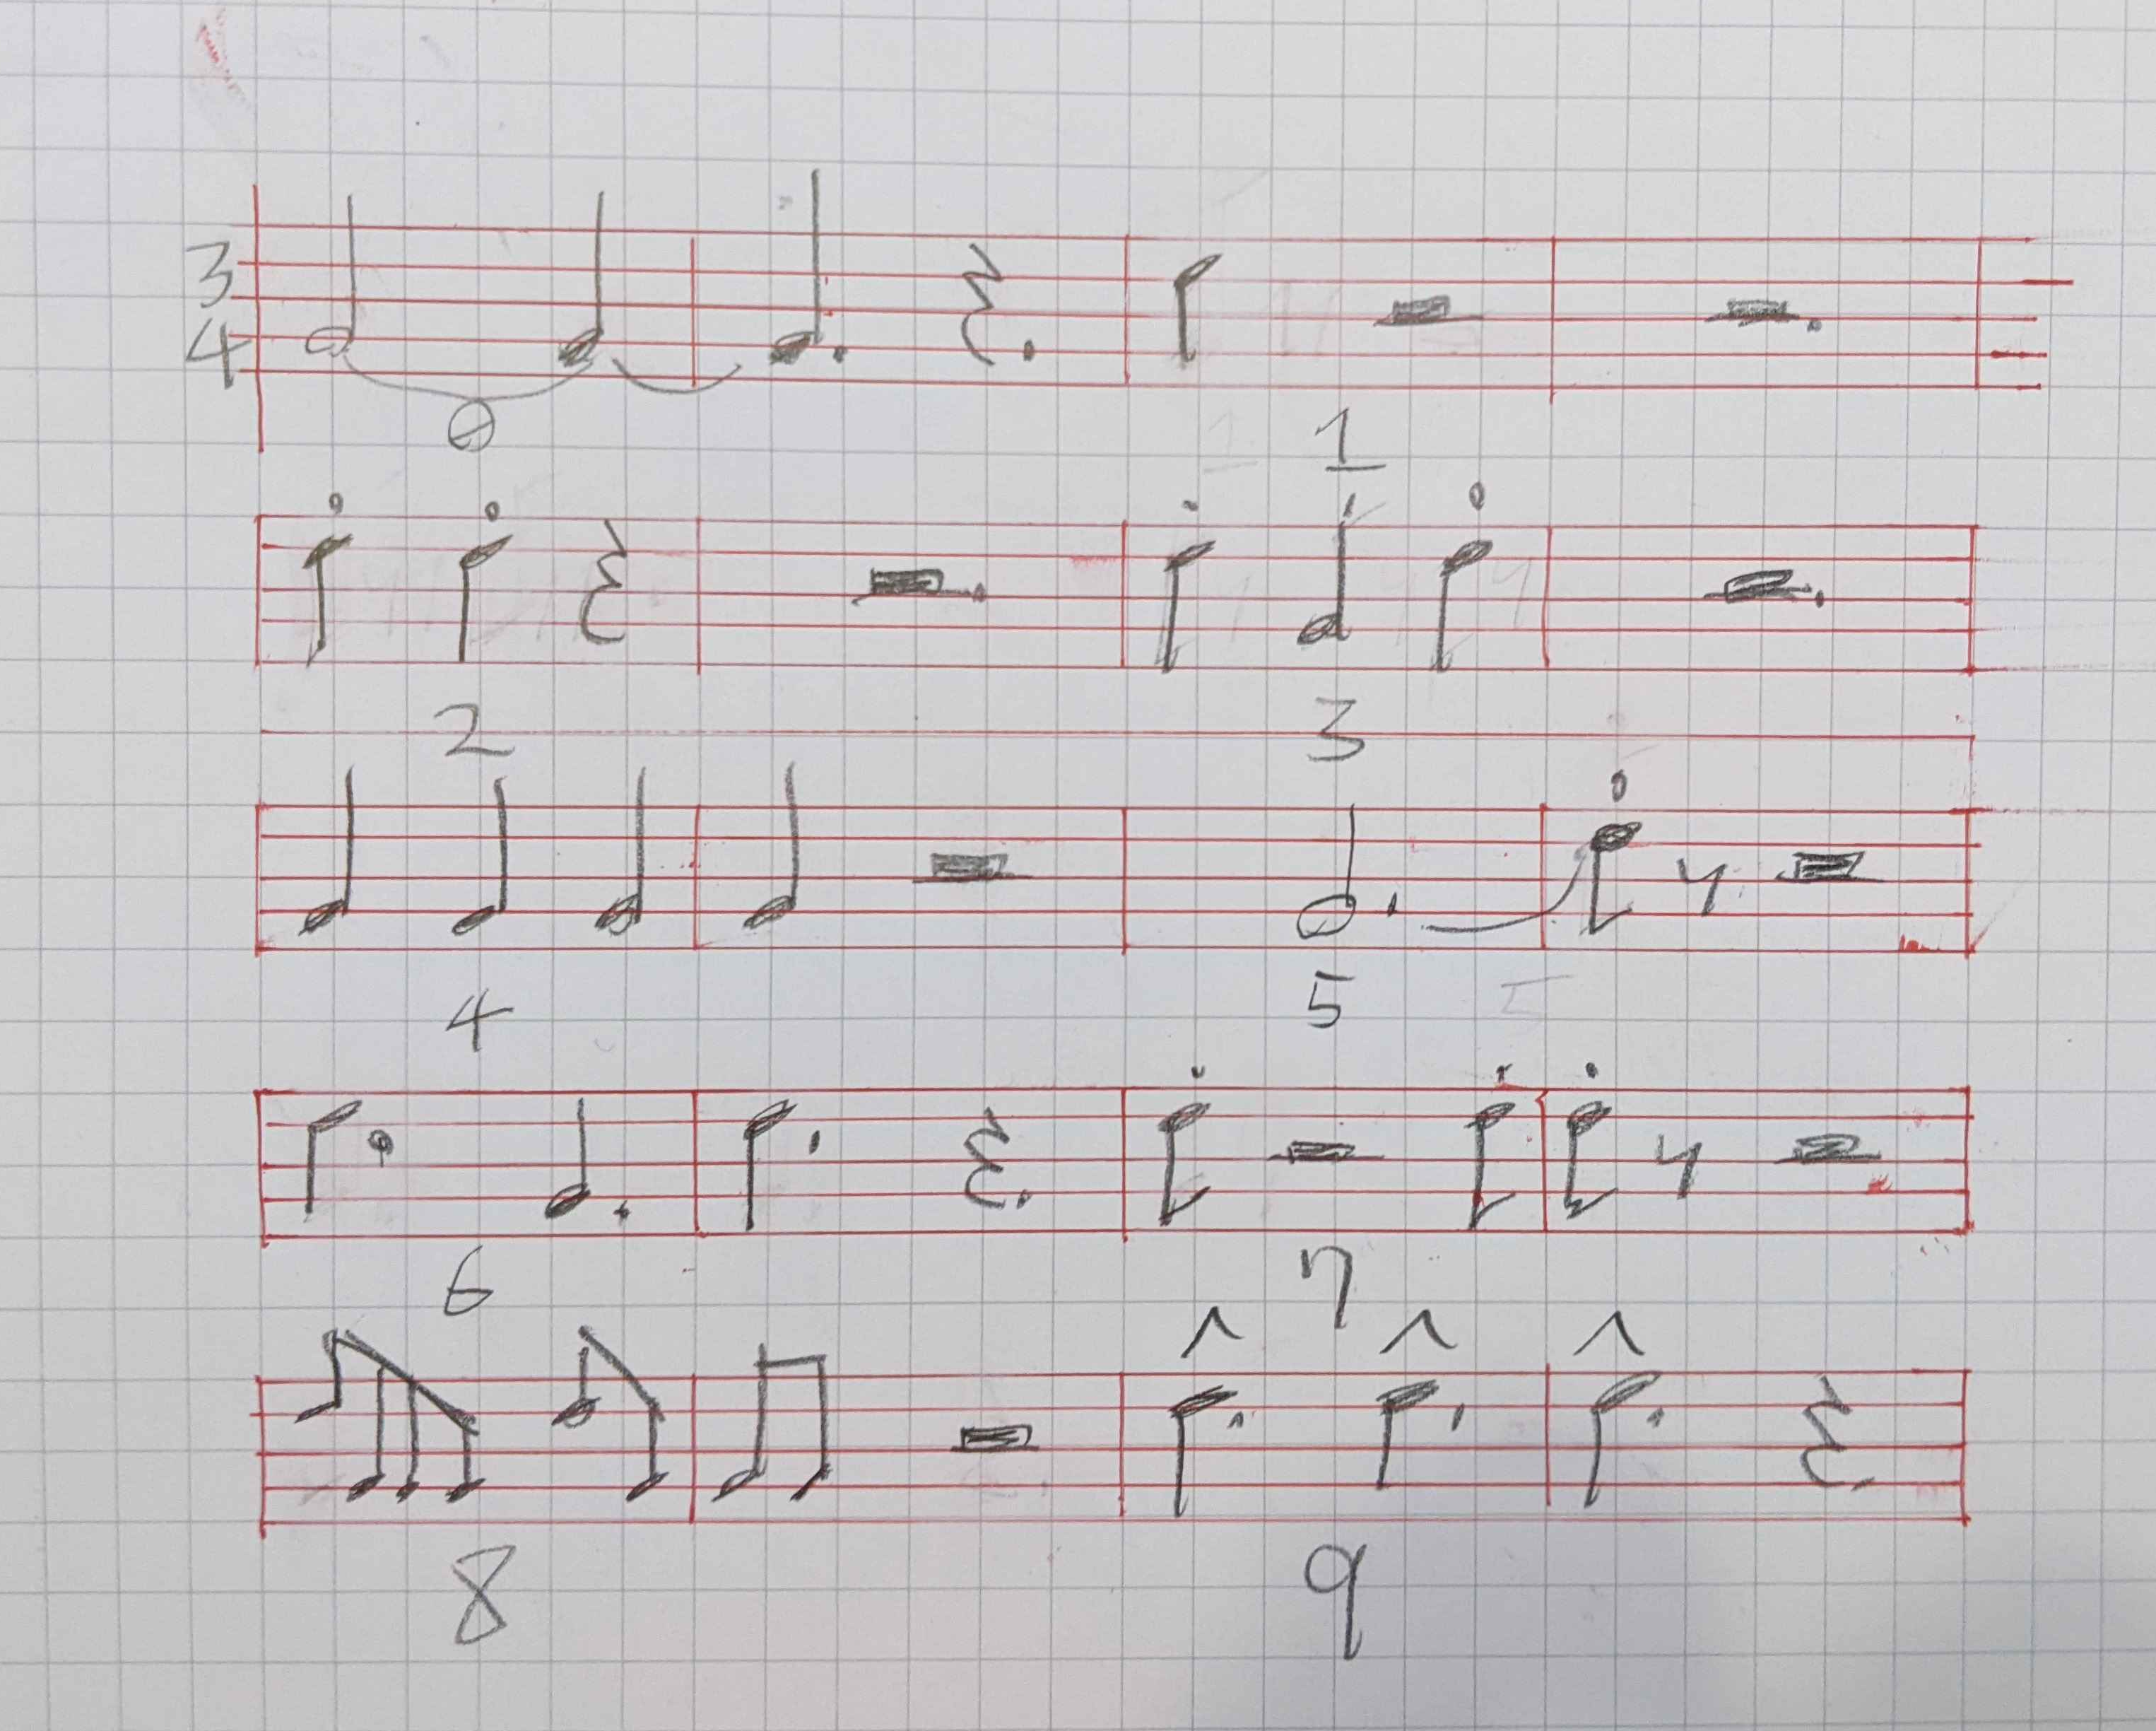 3
4
0 1
2 3
4 5
6 7
8 9